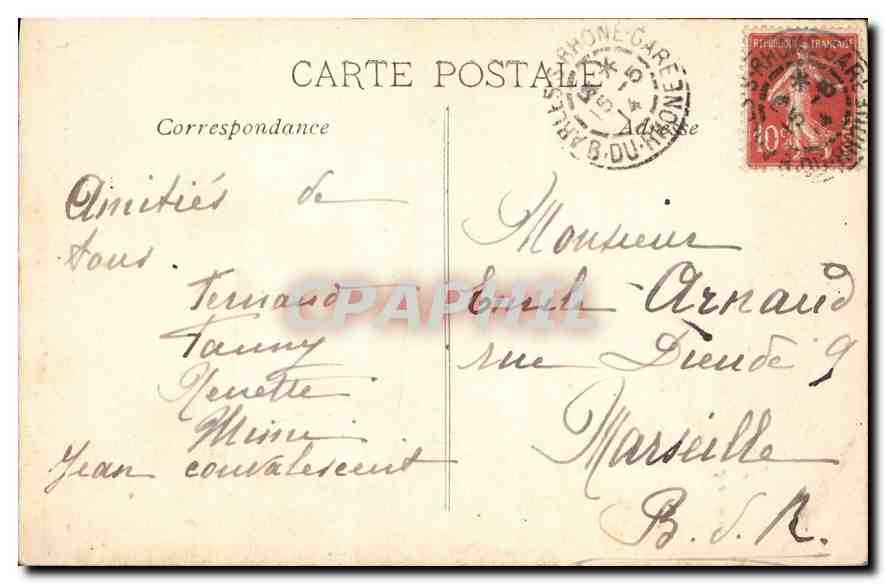 CARTE POSTALE
Correspondance
Adresse
ARLES-S-RHONE-GARE
B-DU-RHONE
REPUBLIQUE FRANÇAISE
10c
Amitiés de
tous
Fernand
Fanny
Nenette
Mimi
Jean convalescent
Monsieur
Emile Arnaud
rue Dieudé 9
Marseille
B. d. R.
CPAPHIL